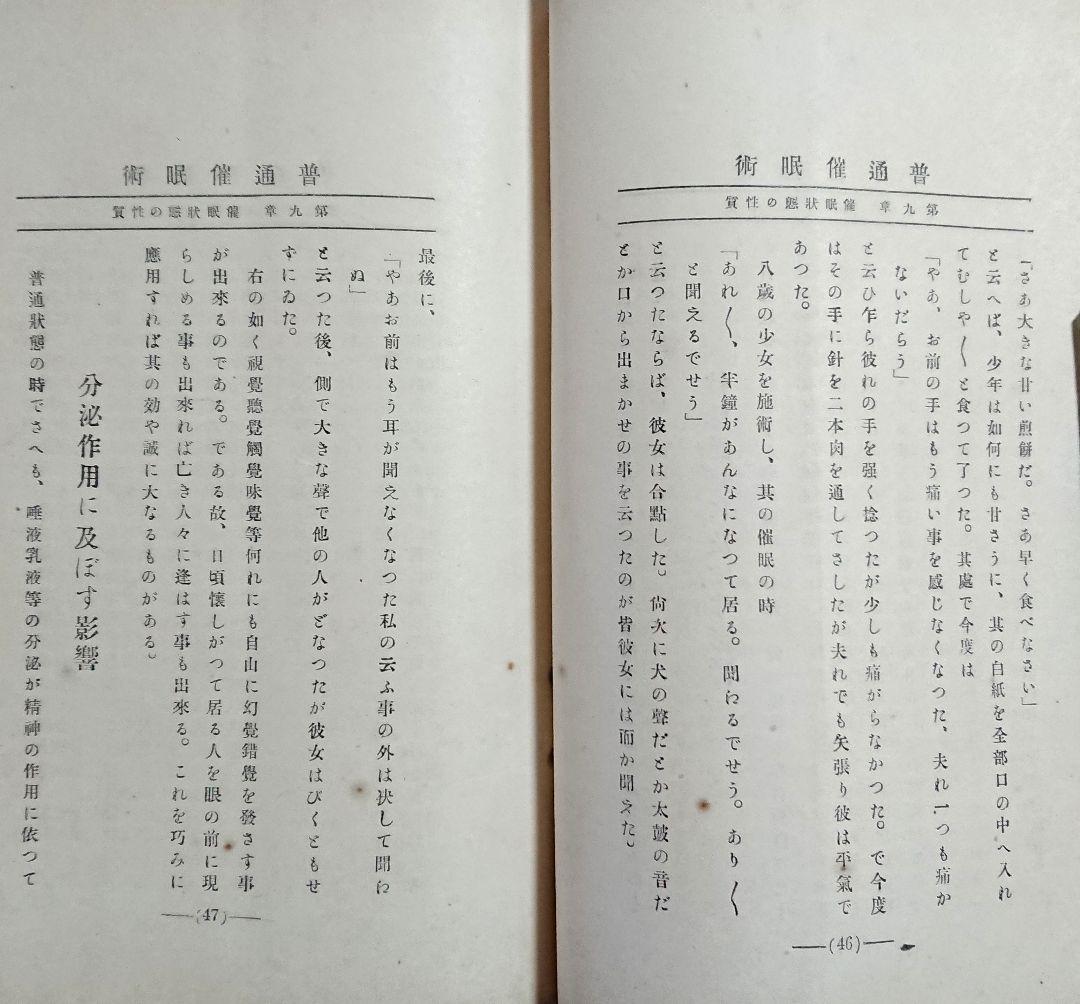 普通催眠術
第九章 催眠狀態の性質
「さあ大きな甘い煎餅だ。さあ早く食べなさい」
と云へば、少年は如何にも甘さうに、其の白紙を全部口の中へ入れ
てむしや〱と食つて了つた。其處で今度は
「やあ、お前の手はもう痛い事を感じなくなつた、夫れ一つも痛か
ないだらう」
と云ひ乍ら彼れの手を强く捻つたが少しも痛がらなかつた。で今度
はその手に針を二本肉を通してさしたが夫れでも矢張り彼は平氣で
あつた。
八歲の少女を施術し、其の催眠の時
「あれ〱、半鐘があんなになつて居る。聞ねるでせう。あり〱
と聞えるでせう」
と云つたならば、彼女は合點した。尙次に犬の聲だとか太皷の音だ
とか口から出まかせの事を云つたのが皆彼女には而か聞えた。
(46)
普通催眠術
第九章 催眠狀態の性質
最後に、
「やあお前はもう耳が聞えなくなつた私の云ふ事の外は决して聞ね
ぬ」
と云つた後、側で大きな聲で他の人がどなつたが彼女はびくともせ
ずにゐた。
右の如く視覺聽覺觸覺味覺等何れにも自由に幻覺錯覺を發さす事
が出來るのである。である故、日頃懷しがつて居る人を眼の前に現
らしめる事も出來れば亡き人々に逢はす事も出來る。これを巧みに
應用すれば其の効や誠に大なるものがある。
分泌作用に及ぼす影響
普通狀態の時でさへも、唾液乳液等の分泌が精神の作用に依つて
(47)